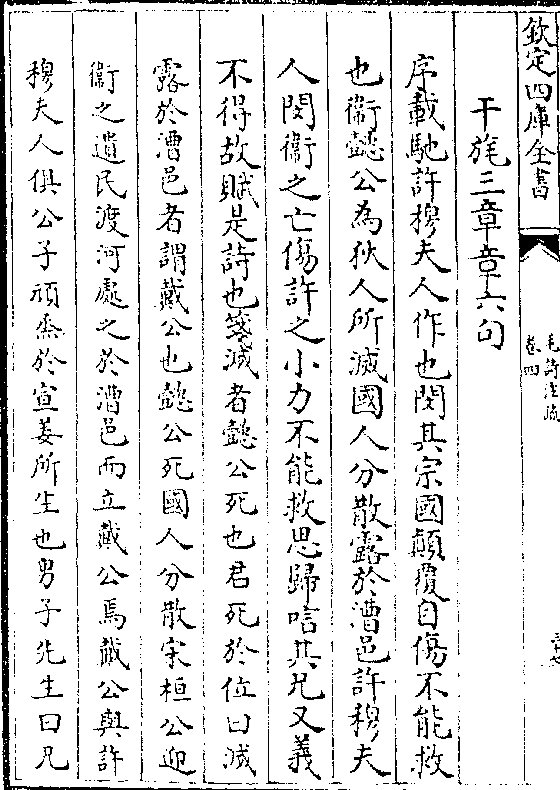 欽定四庫全書
毛詩注疏
卷四
干旄三章章六句
序載馳許穆夫人作也閔其宗國顛覆自傷不能救
也衞懿公為狄人所滅國人分散露於漕邑許穆夫
人閔衞之亡傷許之小力不能救思歸唁其兄又義
不得故賦是詩也箋滅者懿公死也君死於位曰滅
露於漕邑者謂戴公也懿公死國人分散宋桓公迎
衞之遺民渡河處之於漕邑而立戴公焉戴公與許
穆夫人俱公子頑烝於宣姜所生也男子先生曰兄